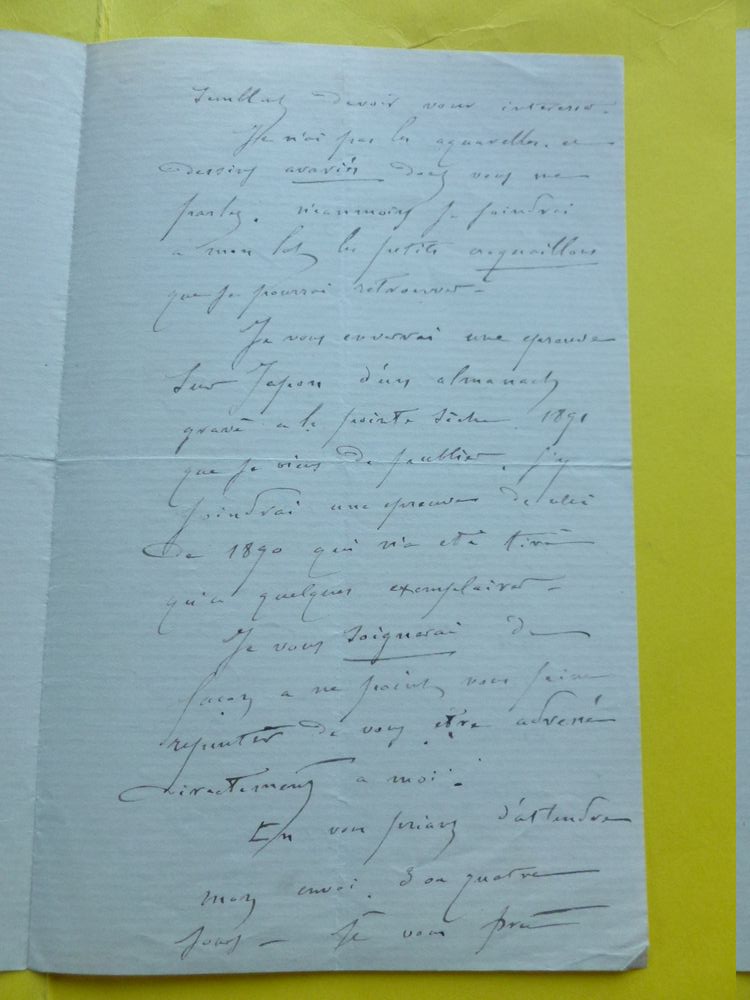 semblent devoir vous interesser.
Je n'ai pas les aquarelles et
dessins avariés dont vous me
parlez. neanmoins je joindrai
a mon lot les petits croquaillons
que je pourrai retrouver –
Je vous enverrai une epreuve
sur Japon d'un almanach
gravé a la pointe sèche 1891
que je viens de publier, j'y
joindrai une epreuve de celui
de 1890 qui n'a eté tiré
qu'a quelques exemplaires –
Je vous soignerai de
façon a ne point vous faire
repentir de vous etre adressé
directement a moi.
En vous priant d'attendre
mon envoi 3 ou quatre
jours – Je vous prie